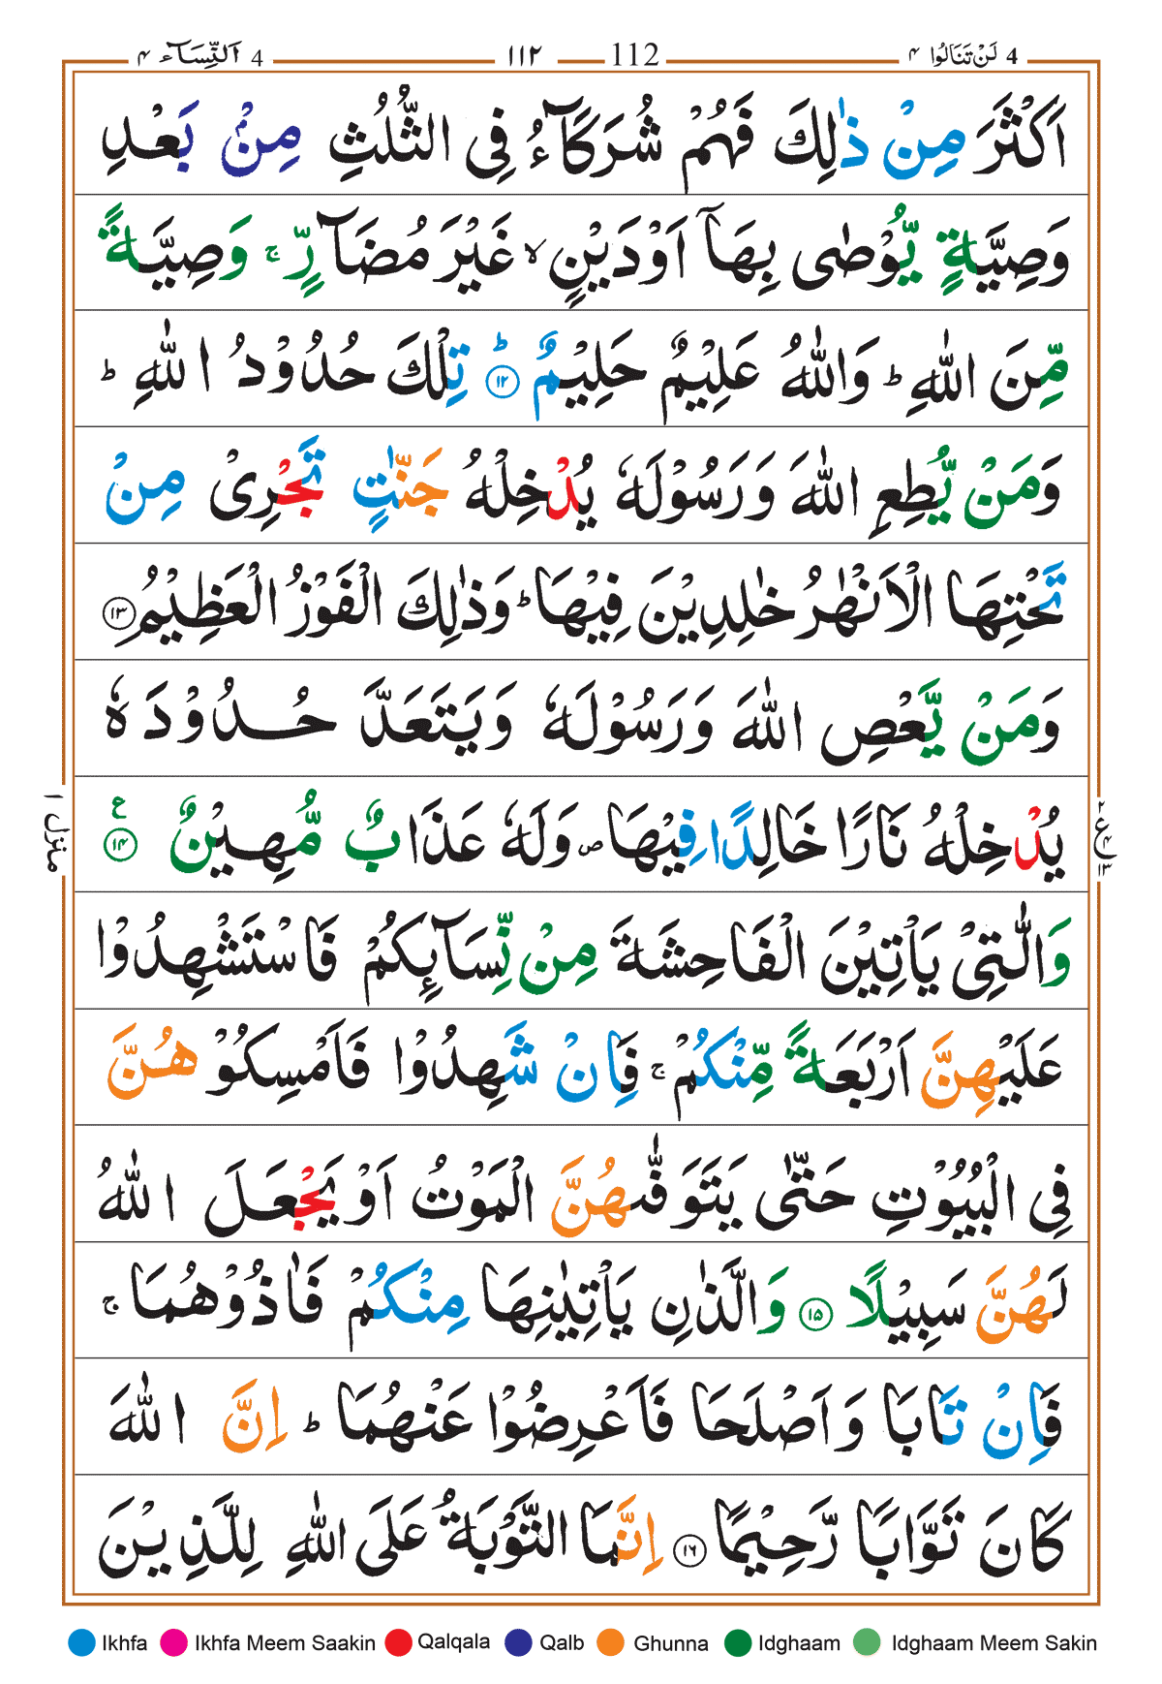 4 لَنْ تَنَالُوا ۴ 112 ١١٢ 4 اَلنِّسَآء ۴
اَكْثَرَ مِنْ ذٰلِكَ فَهُمْ شُرَكَآءُ فِی الثُّلُثِ مِنْۢ بَعْدِ
وَصِیَّةٍ یُّوْصٰی بِهَاۤ اَوْ دَیْنٍ ۙ غَیْرَ مُضَآرٍّ ۚ وَصِیَّةً
مِّنَ اللّٰهِ ؕ وَاللّٰهُ عَلِیْمٌ حَلِیْمٌ ؕ ﴿۱۲﴾ تِلْكَ حُدُوْدُ اللّٰهِ ؕ
وَمَنْ یُّطِعِ اللّٰهَ وَرَسُوْلَهٗ یُدْخِلْهُ جَنّٰتٍ تَجْرِیْ مِنْ
تَحْتِهَا الْاَنْهٰرُ خٰلِدِیْنَ فِیْهَا ؕ وَذٰلِكَ الْفَوْزُ الْعَظِیْمُ ﴿۱۳﴾
وَمَنْ یَّعْصِ اللّٰهَ وَرَسُوْلَهٗ وَیَتَعَدَّ حُدُوْدَهٗ
یُدْخِلْهُ نَارًا خَالِدًا فِیْهَا ۪ وَلَهٗ عَذَابٌ مُّهِیْنٌ ﴿۱۴﴾ ع
منزل ١
وَالّٰتِیْ یَاْتِیْنَ الْفَاحِشَةَ مِنْ نِّسَآىِٕكُمْ فَاسْتَشْهِدُوْا
عَلَیْهِنَّ اَرْبَعَةً مِّنْكُمْ ۚ فَاِنْ شَهِدُوْا فَاَمْسِكُوْهُنَّ
فِی الْبُیُوْتِ حَتّٰی یَتَوَفّٰىهُنَّ الْمَوْتُ اَوْ یَجْعَلَ اللّٰهُ
لَهُنَّ سَبِیْلًا ﴿۱۵﴾ وَالَّذٰنِ یَاْتِیٰنِهَا مِنْكُمْ فَاٰذُوْهُمَا ۚ
فَاِنْ تَابَا وَاَصْلَحَا فَاَعْرِضُوْا عَنْهُمَا ؕ اِنَّ اللّٰهَ
كَانَ تَوَّابًا رَّحِیْمًا ﴿۱۶﴾ اِنَّمَا التَّوْبَةُ عَلَی اللّٰهِ لِلَّذِیْنَ
Ikhfa Ikhfa Meem Saakin Qalqala Qalb Ghunna Idghaam Idghaam Meem Sakin